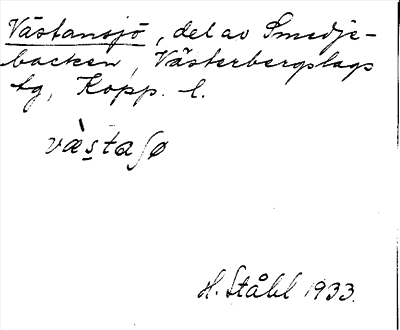 Västansjö, del av Smedje-
backen, Västerbergslags
tg, Kopp. l.
væ̀s̱taʃø
H. Ståhl 1933.